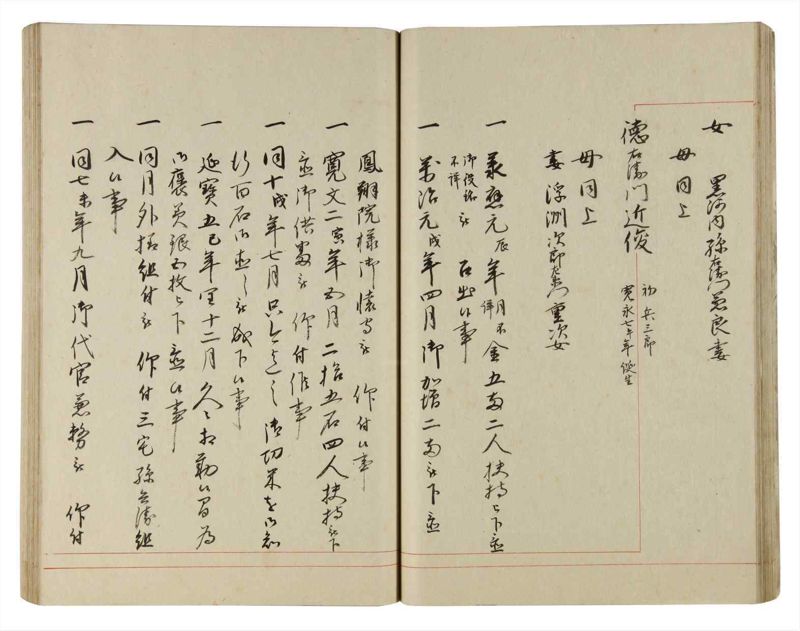 女　黒河内孫左衛門兼良妻
母同上
徳右衛門近俊　初兵三郎　寛永七午年誕生
母同上
妻浮洲次郎左衛門重次女
一　承應元辰年月不詳金五両二人扶持被下置
御役銘不詳被　召出候事
一　萬治元戌年四月御加増二両被下置
鳳翔院様御懐守被　仰付候事
一　寛文二寅年五月二拾五石四人扶持被下
置御供番被　仰付候事
一　同十戌年七月只今迄之御切米を御知
行百石御直し被成下候事
一　延寶五巳年閏十二月久々相勤候間為
御褒美銀五枚被下置候事
一　同月外様組付被　仰付三宅孫兵衛組
入候事
一　同七未年九月御代官兼務被　仰付